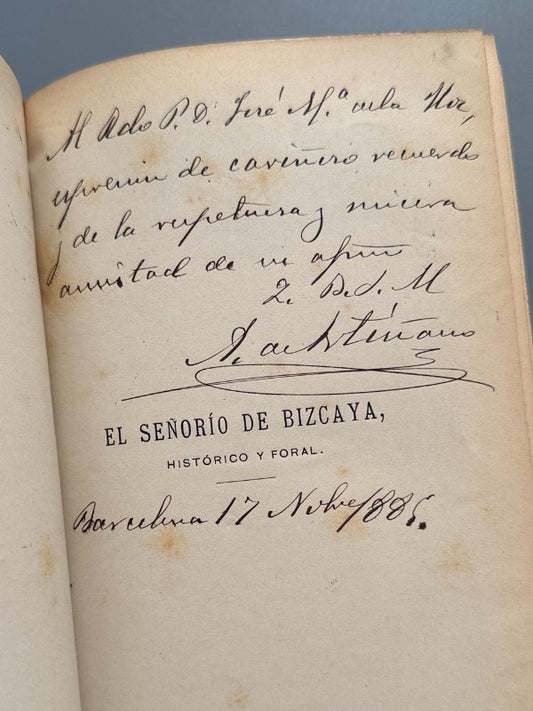 Al Rdo P. D. José M.ª de la Hoz,
expresion de cariñoso recuerdo
y de la respetuosa y sincera
amistad de su afmo
Q. B. S. M
A. de Artíñano
EL SEÑORÍO DE BIZCAYA,
HISTÓRICO Y FORAL.
Barcelona 17 Nobre/885.